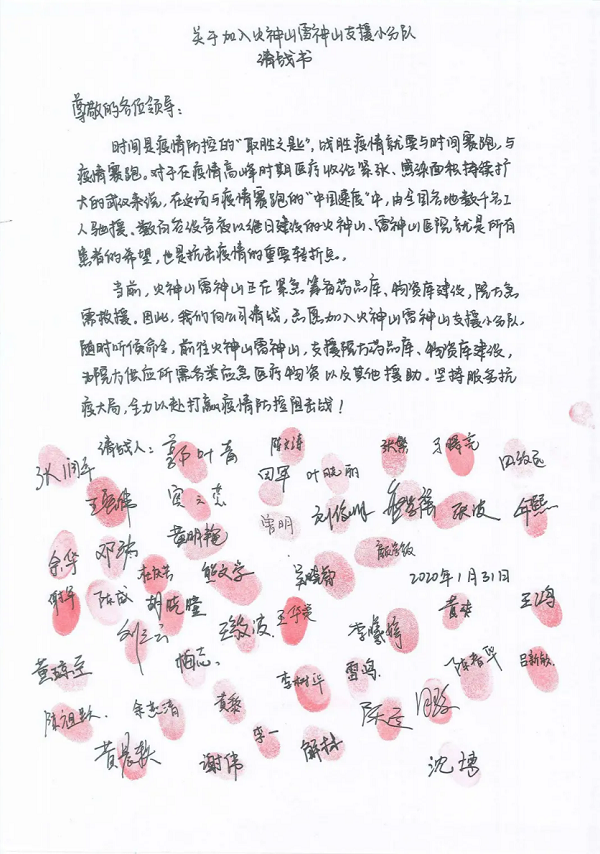 关于加入火神山雷神山支援小分队
请战书
尊敬的各位领导：
时间是疫情防控的“取胜之匙”，战胜疫情就要与时间赛跑，与
疫情赛跑。对于在疫情高峰时期医疗收治紧张、感染面积持续扩
大的武汉来说，在这场与疫情赛跑的“中国速度”中，由全国各地数千名工
人驰援、数百台设备夜以继日建设的火神山、雷神山医院就是所有
患者的希望，也是抗击疫情的重要转折点。
当前，火神山雷神山正在紧急筹备药品库、物资库建设，院方急
需救援。因此，我们向公司请战，志愿加入火神山雷神山支援小分队，
随时听候命令，前往火神山雷神山，支援院方药品库、物资库建设，
为院方供应所需各类应急医疗物资以及其他援助。坚持服务抗
疫大局，全力以赴打赢疫情防控阻击战！
请战人： 叶青 张黎
张润平 田军 叶晓丽
曾明 刘俊明 张波
余华 邓瑞 黄明艳
熊文学 2020年1月31日
陈成 胡晓瞳 王华荣 李曦婷 黄葵 王鸿
刘立云 王敏波
李树华 雷鸣 吕新欣
余志清 袁黎 李一
黄晨敏 谢伟 解林 沈博